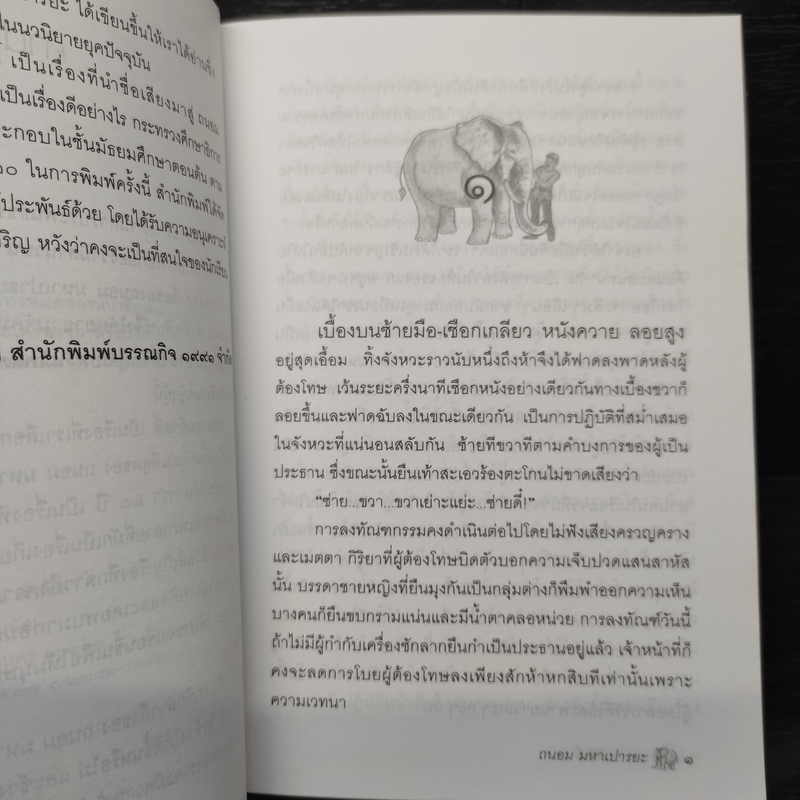 ารยะ ได้เขียนขึ้นให้เราได้อ่านซึ่ง
ในนวนิยายยุคปัจจุบัน
เป็นเรื่องที่นำชื่อเสียงมาสู่ ถนอม
เป็นเรื่องดีอย่างไร กระทรวงศึกษาธิการ
ะกอบในชั้นมัธยมศึกษาตอนต้น ตาม
๒๐ ในการพิมพ์ครั้งนี้ สำนักพิมพ์ได้จัด
ประพันธ์ด้วย โดยได้รับความอนุเคราะห์
ริญ หวังว่าคงจะเป็นที่สนใจของนักเรียน
สำนักพิมพ์บรรณกิจ ๑๙๙๑ จำกัด
๑
เบื้องบนซ้ายมือ-เชือกเกลียว หนังควาย ลอยสูง
อยู่สุดเอื้อม ทิ้งจังหวะราวนับหนึ่งถึงห้าจึงได้ฟาดลงพาดหลังผู้
ต้องโทษ เว้นระยะครึ่งนาทีเชือกหนังอย่างเดียวกันทางเบื้องขวาก็
ลอยขึ้นและฟาดฉับลงในขณะเดียวกัน เป็นการปฏิบัติที่สม่ำเสมอ
ในจังหวะที่แน่นอนสลับกัน ซ้ายทีขวาทีตามคำบงการของผู้เป็น
ประธาน ซึ่งขณะนั้นยืนเท้าสะเอวร้องตะโกนไม่ขาดเสียงว่า
“ซ่าย...ขวา...ขวาเย่าะแย่ะ...ซ่ายดี๋!”
การลงทัณฑกรรมคงดำเนินต่อไปโดยไม่ฟังเสียงครวญคราง
และเมตตา กิริยาที่ผู้ต้องโทษบิดตัวบอกความเจ็บปวดแสนสาหัส
นั้น บรรดาชายหญิงที่ยืนมุงกันเป็นกลุ่มต่างก็พึมพำออกความเห็น
บางคนก็ยืนขบกรามแน่นและมีน้ำตาคลอหน่วย การลงทัณฑ์วันนี้
ถ้าไม่มีผู้กำกับเครื่องชักลากยืนกำเป็นประธานอยู่แล้ว เจ้าหน้าที่ก็
คงจะลดการโบยผู้ต้องโทษลงเพียงสักห้าหกสิบทีเท่านั้นเพราะ
ความเวทนา
ถนอม มหาเปารยะ ๑